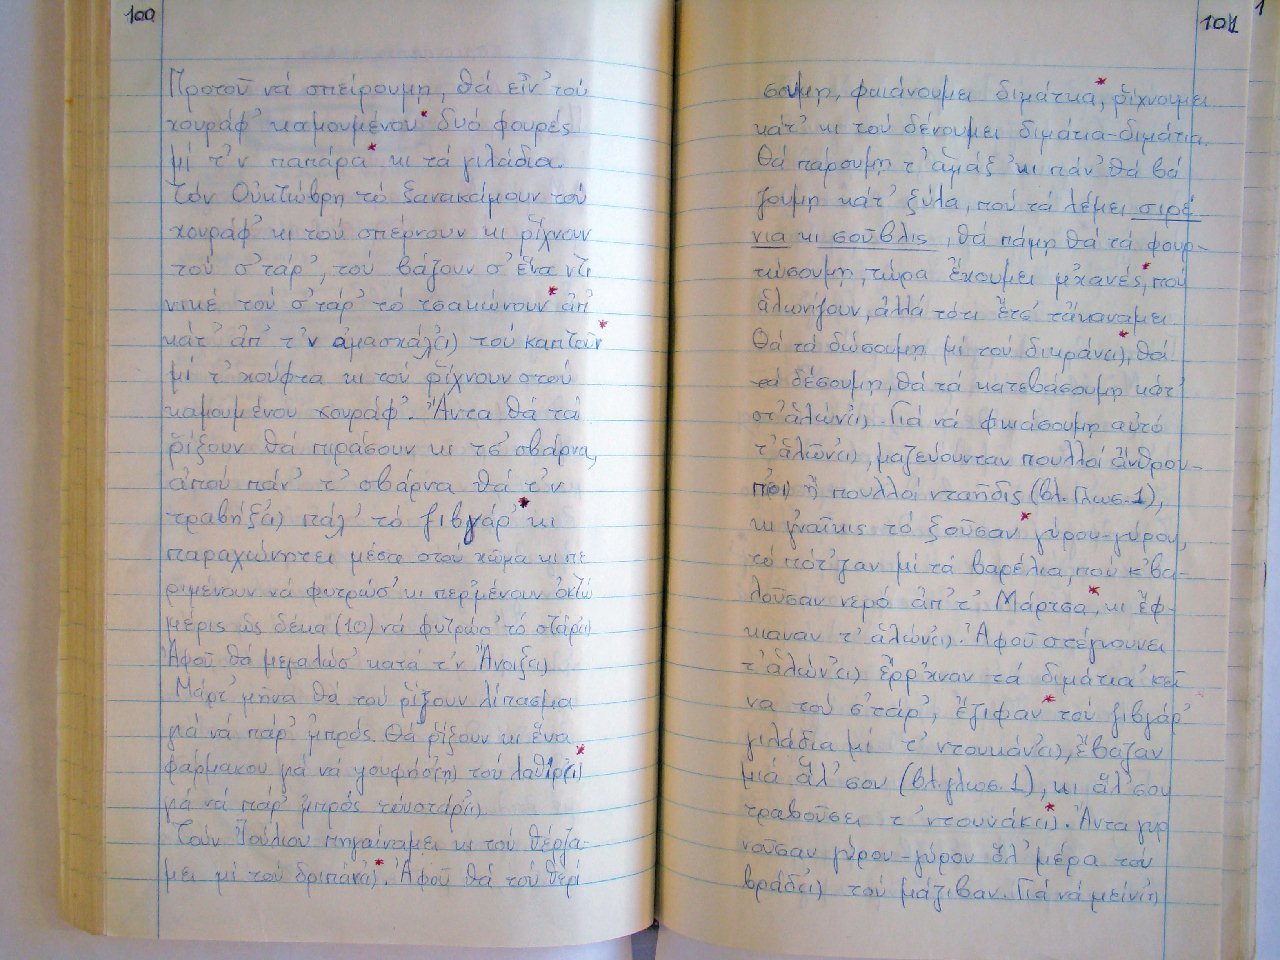 100
Προτοῦ νά σπείρουμη, θά εἶν' τού
χουράφ' καμουμένου* δυό φουρές
μί τ'ν παπάρα* κι τά γιλάδια.
Τόν Οὐκτώβρη τό ξανακάμουν τού
χουράφ' κι τού σπέρνουν κι ρἴχνουν
τού σ'τάρ', τού βάζουν σ' ἕνα ντι
νικέ τού σ'τάρ' τό τσακώνουν* ἀπ'
κάτ' ἀπ' τ'ν ἀμασχάλ(ι) τού καπτοῦν*
μί τ' χούφτα κι τού ρἴχνουν στού
καμουμένου χουράφ'. Ἄντα θά τά
ρἴξουν θά πιράσουν κι τσ' σβάρνα,
ἀπού πάν' τ' σβάρνα θά τ'ν
τραβήξ(ι) πάλ' τό ζιβγάρ'* κι
παραχώνητει μέσα στού χῶμα κι πε
ριμένουν νά φυτρώσ' κι περμένουν ὀκτώ
μέρις ὥς δέκα (10) νά φυτρώσ' τό στάρ(ι)
Ἀφοῦ θά μεγαλώσ' κατά τ'ν Ἄνοιξ(ι)
Μάρτ' μῆνα θά τού ρἴξουν λίπασμα
γιά νά πάρ' μπρός. Θά ρἴξουν κι ἕνα
φάρμακου γιά νά ψουφήσ(η) τού λαθίρ(ι)*
γιά νά πάρ' μπρός τώυστάρ(ι).
Τούν Ἰούλιου πηγαίναμει κι τού θέρζα-
μει μί τού δριπάν(ι)*. Ἀφοῦ θά τού θερί
101
σουμη, φκιάνουμει διμάτκα*, ρἴχνουμει
κάτ' κι τού δένουμει διμάτια-διμάτια.
Θά πάρουμη τ' ἁμάξ' κι πάν' θά βά
ζουμη κάτ' ξύλα, πού τά λέμει σιρέ-
νια κι σούβλις, θά πάμη θά τά φουρ-
τώσουμη, τώρα ἔχουμει μ'χανές*, πού
ἁλωνίζουν, ἀλλά τότι ἔτσ' τἄκαναμει.
Θά τά δώσουμη μί τού δικράν(ι)*, θά
δέσουμη, θά τά κατεβάσουμη κάτ'
στ' ἁλών(ι). Γιά νά φκιάσουμη αὐτό
τ' ἁλών(ι), μαζεύουνταν πουλλοί ἄνθρου-
ποι ἤ πουλλοί νταήδις (βλ. Γλωσ. 1),
κι γ'ναῖκις τό ξοῦσαν* γύρου-γύρου,
τό πότ'ζαν μί τά βαρέλια, πού κ'βα-
λοῦσαν νερό ἀπ' τ' Μάρτσα*, κι ἔφ-
κιαναν τ' ἁλών(ι). Ἀφοῦ στέγνουνει
τ' ἁλών(ι) ἔρρ'χναν τά διμάτια 'κεῖ
να τού σ'τάρ', ἔζιφαν* τού ζιβγάρ'
γιλάδια μί τ' ντουκάν(ι), ἔβαζαν
μιά ἅλ'σου (βλ. γλωσ. 1), κι ἅλ'σου
τραβοῦσει τ' ντουνάκ(ι)*. Ἄντα γυρ
νοῦσαν γύρου-γύρου ὅλ' μέρα του
βράδ(ι) τού μάζιβαν. Γιά νά μείν(ι)